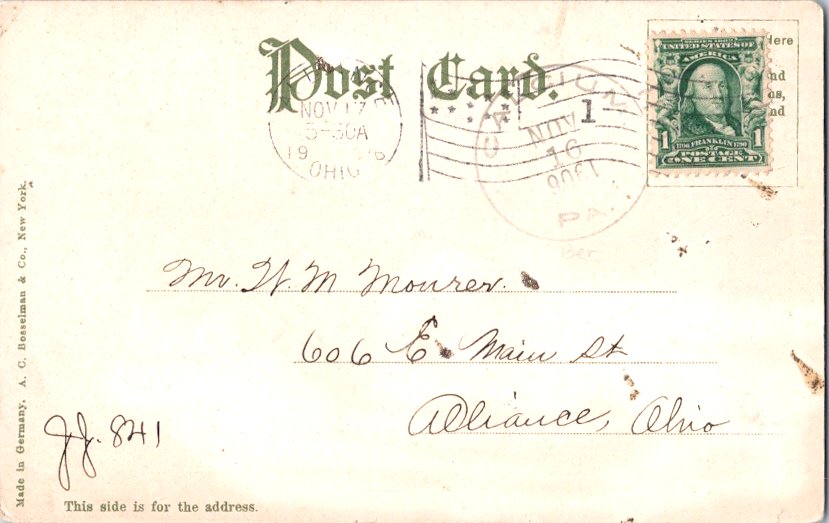 Post Card.
Here
nd
ns,
nd
SERIES 1902
UNITED STATES OF
AMERICA
1 1706 FRANKLIN 1790 1
POSTAGE
ONE CENT
NOV 17
5-30A
19 06
OHIO
1
NOV
16
1906
PA.
Ber
Mr. W. M Mourer.
606 E. Main St
Alliance, Ohio
JJ. 841
This side is for the address.
Made in Germany. A. C. Bosselman & Co., New York.